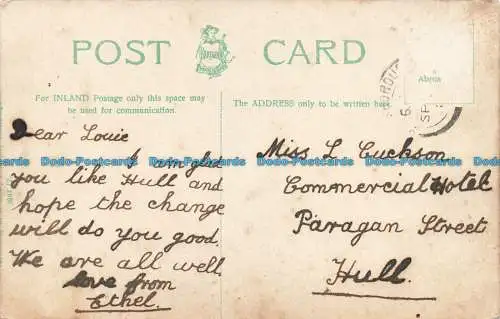 POST CARD
For INLAND Postage only this space may
be used for communication.
The ADDRESS only to be written here.
Dear Louie
I am glad
you like Hull and
hope the change
will do you good.
We are all well
love from
Ethel.
Miss L Cuckson
Commercial Hotel
Paragan Street
Hull.
Dodo-Postcards Dodo-Postcards Dodo-Postcards Dodo-Postcards
Dodo-Postcards Dodo-Postcards Dodo-Postcards Dodo-Postcards